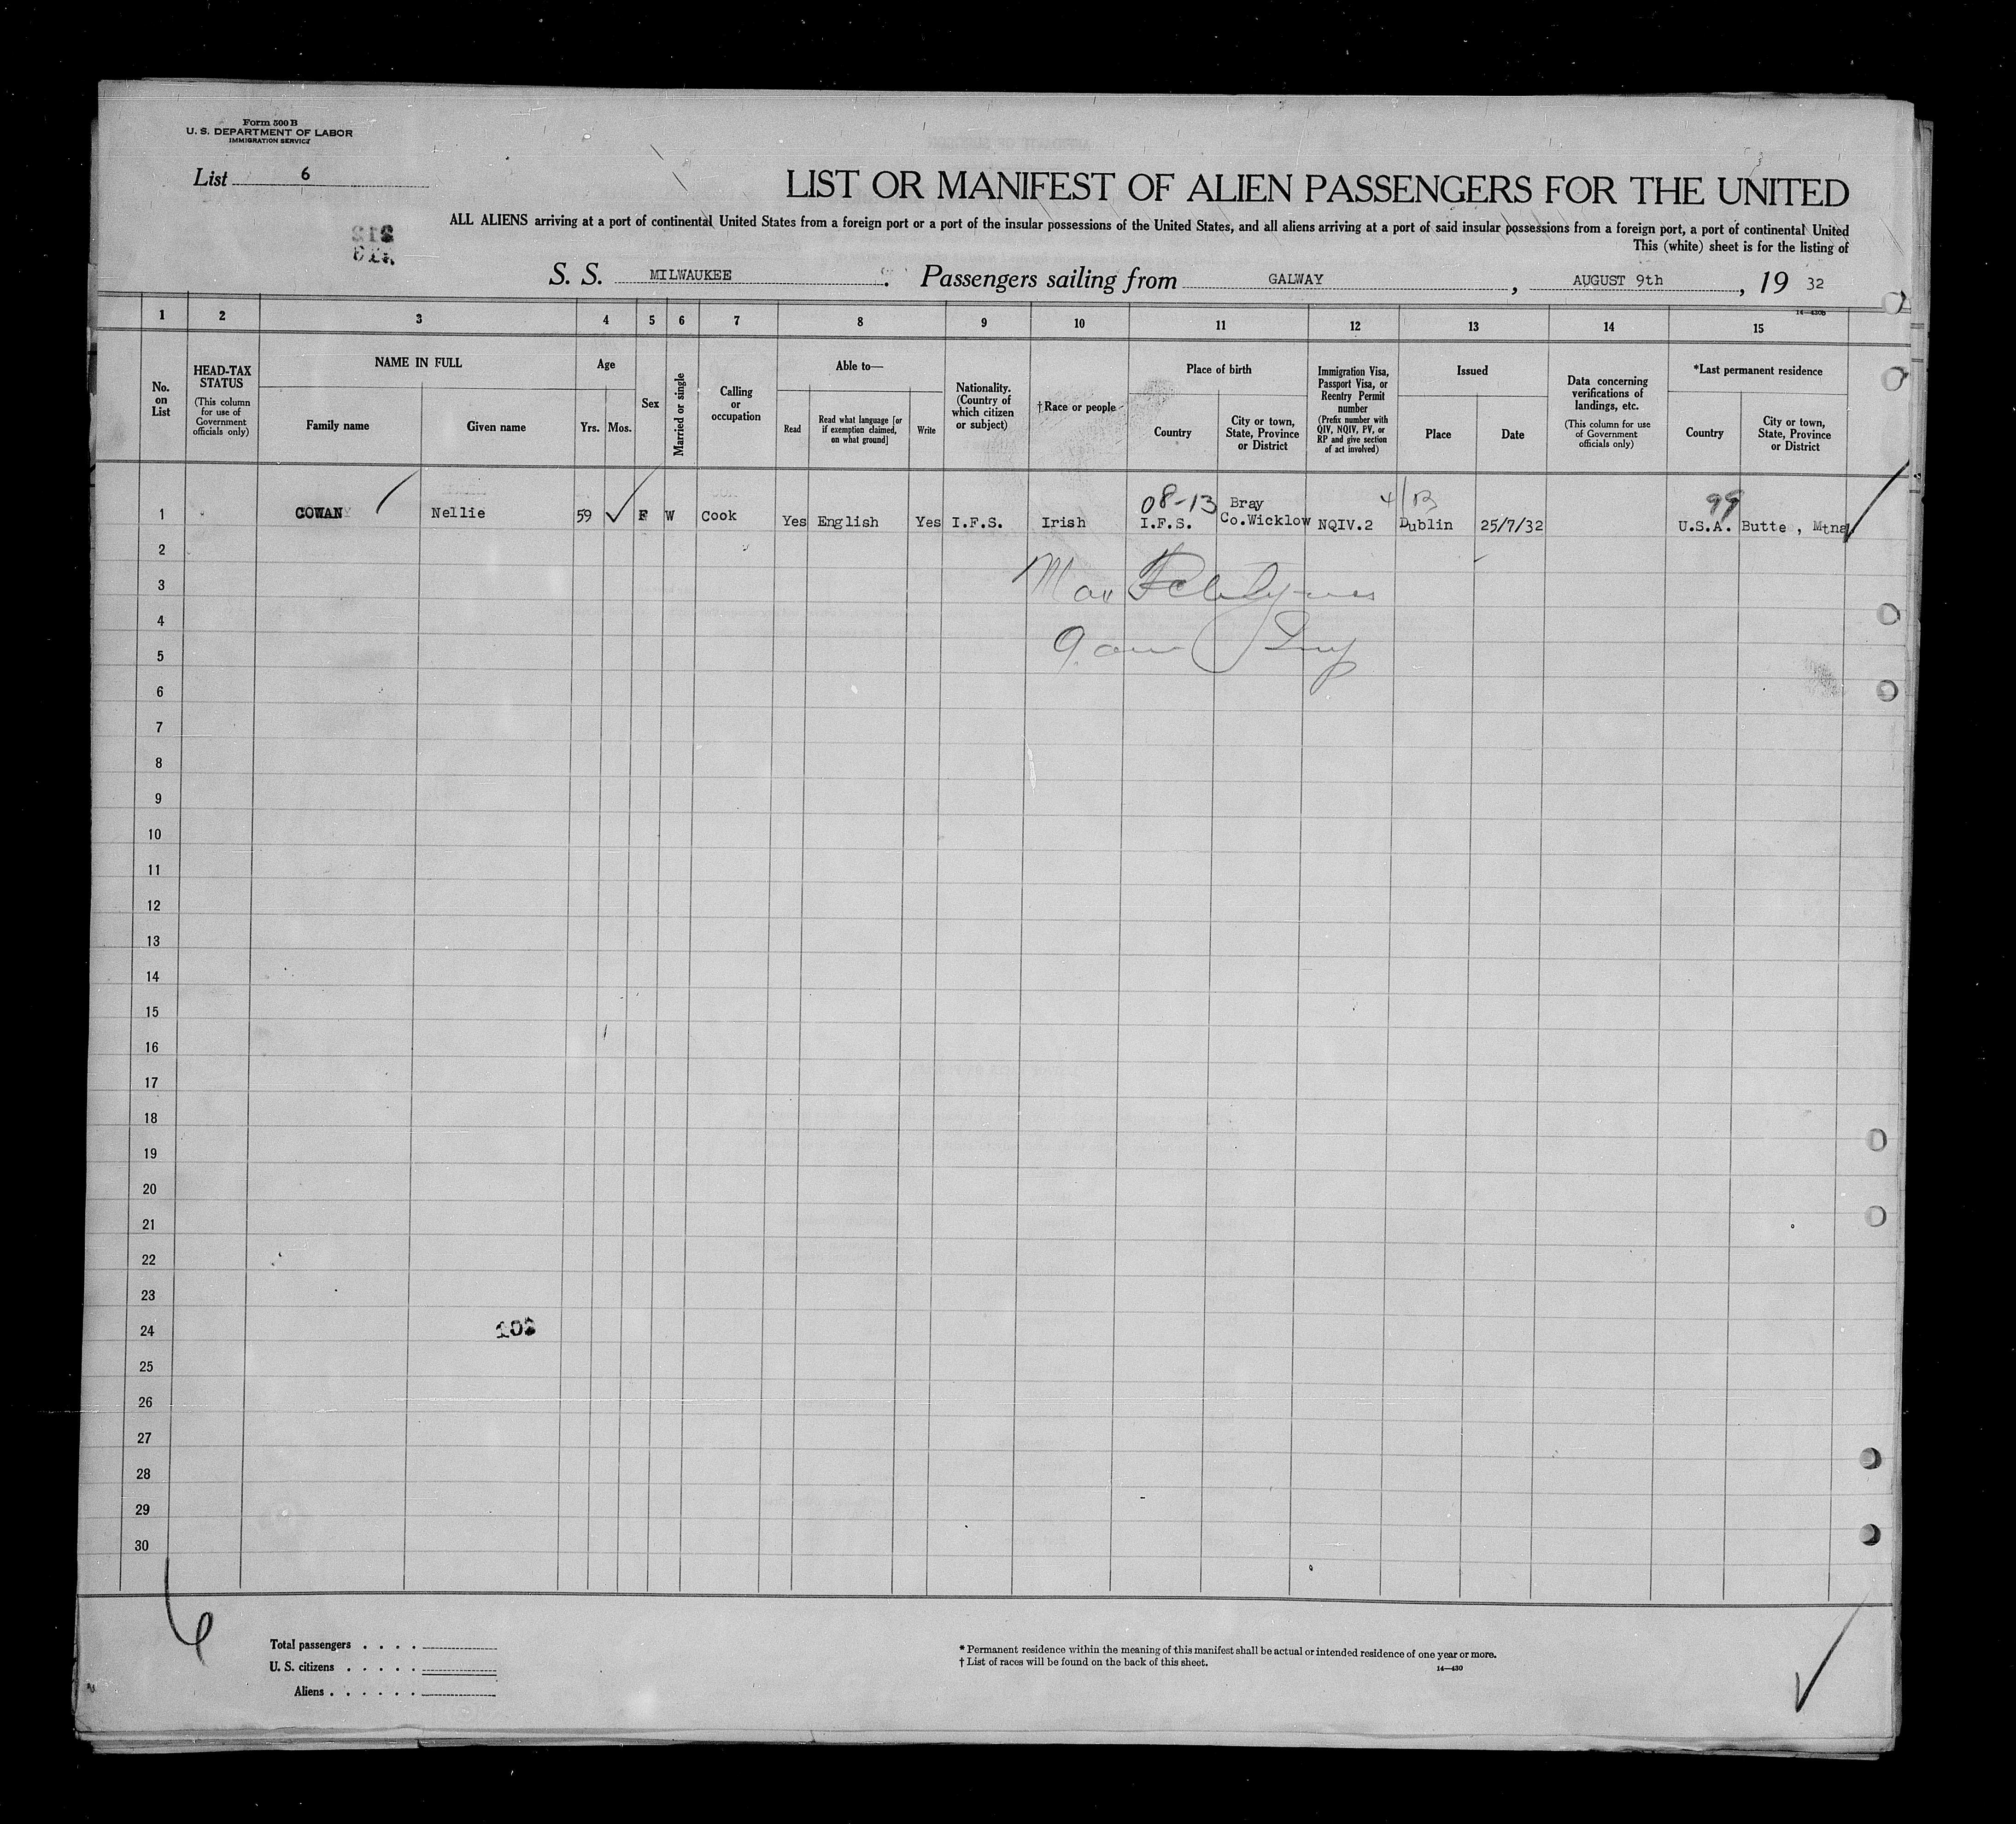 Form 500 B
U. S. DEPARTMENT OF LABOR
IMMIGRATION SERVICE
List 6
LIST OR MANIFEST OF ALIEN PASSENGERS FOR THE UNITED
ALL ALIENS arriving at a port of continental United States from a foreign port or a port of the insular possessions of the United States, and all aliens arriving at a port of said insular possessions from a foreign port, a port of continental United
This (white) sheet is for the listing of
S. S. MILWAUKEE. Passengers sailing from GALWAY, AUGUST 9th, 19 32
1 2 3 4 5 6 7 8 9 10 11 12 13 14 15
No. on List
HEAD-TAX STATUS
(This column for use of Government officials only)
NAME IN FULL
Family name
Given name
Age
Yrs.
Mos.
Sex
Married or single
Calling or occupation
Able to—
Read
Read what language [or if exemption claimed, on what ground]
Write
Nationality. (Country of which citizen or subject)
†Race or people
Place of birth
Country
City or town, State, Province or District
Immigration Visa, Passport Visa, or Reentry Permit number
(Prefix number with QIV, NQIV, PV, or RP and give section of act involved)
Issued
Place
Date
Data concerning verifications of landings, etc.
(This column for use of Government officials only)
*Last permanent residence
Country
City or town, State, Province or District
08-13 Bray 99
1 COWAN Nellie 59 F W Cook Yes English Yes I.F.S. Irish I.F.S. Co.Wicklow NQIV.2 Dublin 25/7/32 U.S.A. Butte , Mtna
2
3
4
5
6
7
8
9
10
11
12
13
14
15
16
17
18
19
20
21
22
23
24
25
26
27
28
29
30
Total passengers . . . .
U. S. citizens . . . . .
Aliens . . . . . .
* Permanent residence within the meaning of this manifest shall be actual or intended residence of one year or more.
† List of races will be found on the back of this sheet.
14—430